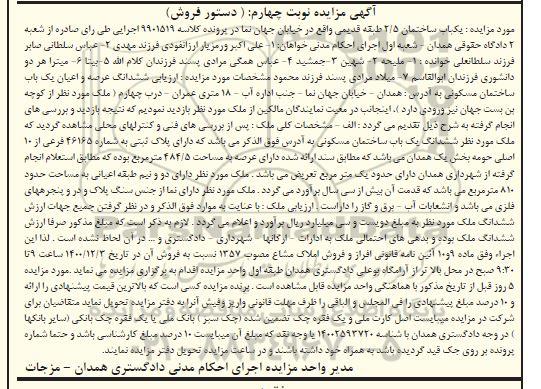 آگهی مزایده نوبت چهارم: ( دستور فروش)
مورد مزایده : یکباب ساختمان ۲/۵ طبقه قدیمی واقع در خیابان جهان نما در پرونده کلاسه ۹۹۰۱۵۱۹ اجرایی طی رای صادره از شعبه
۲ دادگاه حقوقی همدان – شعبه اول اجرای احکام مدنی خواهان: ۱- علی اکبر ورمزیار ارزانفودی فرزند مهدی ۲- عباس سلطانی صابر
فرزند سلطانعلی خوانده : ۱- ملیحه ۲- شهین ۳- جمشید ۴- عباس همگی مرادی پسند فرزندان کلام الله ۵- بیتا ۶- میترا هر دو
دانشوری فرزندان ابوالقاسم ۷- میلاد مرادی پسند فرزند محمود مشخصات مورد مزایده : ارزیابی ششدانگ عرصه و اعیان یک باب
ساختمان مسکونی به آدرس : همدان – خیابان جهان نما – جنب اداره آب – ۱۸ متری عمران – درب چهارم ( ملک مورد نظر از کوچه
بن بست جهان نیز ورودی دارد )، اینجانب در معیت نمایندگان مالکین از ملک مورد نظر بازدید نمودیم که نتیجه بازدید و بررسی های
انجام گرفته به شرح ذیل تقدیم می گردد : الف – مشخصات کلی ملک : پس از بررسی های فنی و کنترلهای محلی مشاهده گردید که
ملک مورد نظر ششدانگ یک باب ساختمان مسکونی به آدرس فوق الذکر می باشد که دارای پلاک ثبتی به شماره ۴۶۱۶۵ فرعی از ۱۰
اصلی حومه بخش یک همدان می باشد که مطابق سند ارائه شده دارای عرصه به مساحت ۴۸۴/۵ مترمربع بوده که مطابق استعلام انجام
گرفته از شهرداری همدان دارای حدود یک متر مربع تعریض می باشد . ملک مورد نظر دارای دو و نیم طبقه اعیانی به مساحت حدود
۸۱۰ مترمربع می باشد که قدمت آن بیش از سی سال برآورد می گردد . ملک مورد نظر دارای نما از جنس سنگ پلاک و در و پنجرههای
فلزی می باشد و انشعابات آب – برق و گاز را داراست . ارزیابی ملک : با عنایت به موارد فوق الذکر و در نظر گرفتن جمیع جهات ارزش
ششدانگ ملک مورد نظر به مبلغ دویست و سی میلیارد ریال برآورد و اعلام می گردد . لازم به ذکر است که مبلغ مذکور صرفا ارزش
ششدانگ ملک بوده و بدهی های احتمالی ملک به ادارات – ارگانها – شهرداری – دادگستری و ... در آن لحاظ نشده است . لذا این
اجراء وفق ماده ۹و۱۰ آئین نامه قانونی افراز و فروش املاک مشاع مصوب ۱۳۵۷ نسبت به فروش آن در تاریخ ۱۴۰۰/۱۲/۳ ساعت ۹تا
۹:۳۰ صبح در محل بالا تر از آرامگاه بوعلی دادگستری همدان طبقه اول واحد مزایده اقدام به برگزاری مزایده می نماید .مورد مزایده
۵ روز قبل از تاریخ مذکور با هماهنگی واحد مزایده قابل مشاهده است . برنده مزایده کسی است که بالاترین قیمت پیشنهادی را ارائه
و ۱۰ درصد مبلغ پیشنهادی را فی المجلس و الباقی را ظرف مهلت قانونی واریز وفیش آنرا به دفتر مزایده تحویل نماید متقاضیان برای
شرکت در مزایده میبایست اصل کارت ملی و یک فقره چک تضمین شده (چک سبز ) بانک ملی یا یک فقره چک بانکی (سایر بانکها
) در وجه دادگستری همدان با شناسه ۱۴۰۰۲۵۹۳۷۲۰ یا وجه نقد که مبلغ آن میبایست ۱۰ درصد مبلغ کارشناسی باشد و حتما شماره
پرونده بر روی جک قید گردیده باشد به همراه خود داشته باشند و در ساعت مزایده تحویل دفتر مزایده نمایند.
مدیر واحد مزایده اجرای احکام مدنی دادگستری همدان – مزجات